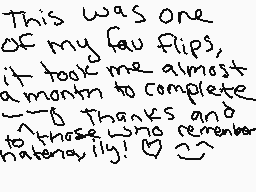 This was one
of my fav flips,
it took me almost
a month to complete
Thanks and
to ^ those who remember
hatena, ily! ♡